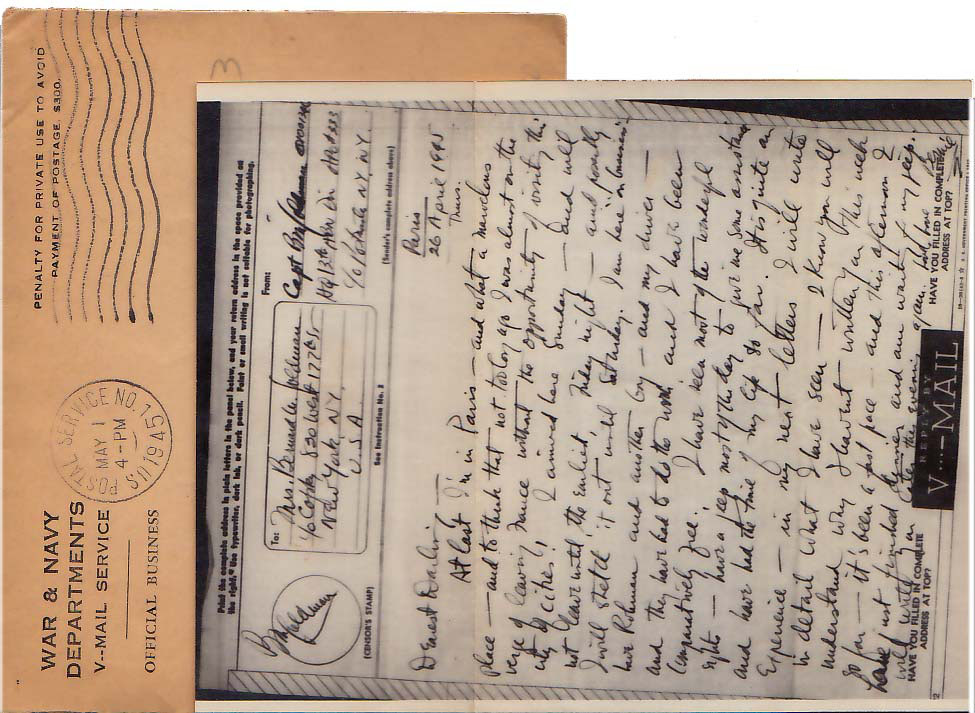 WAR & NAVY
DEPARTMENTS
V--MAIL SERVICE
OFFICIAL BUSINESS
PENALTY FOR PRIVATE USE TO AVOID
PAYMENT OF POSTAGE, $300.
POSTAL SERVICE NO. 1
MAY 1
4-PM
1945
3
Print the complete address in plain letters in the panel below, and your return address in the space provided on
the right. Use typewriter, dark ink, or dark pencil. Faint or small writing is not suitable for photographing.
To:
Mrs. Bernard Feldman
c/o Cohn
830 West 177th St.
New York, N.Y.
U.S.A
From:
Capt
Hq 13th
c/o Postmaster, N.Y., N.Y.
(CENSOR'S STAMP)
See Instruction No. 2
(Sender's complete address above)
Paris
26 April 1945
Thurs.
Dearest Darling
At last I'm in Paris — and what a marvelous
place — and to think that not too long ago I was almost on the
verge of leaving France without the opportunity of visiting this
city of cities! I arrived here Sunday — and will
not leave until the earliest, Friday night — and possibly
I will stretch it out until Saturday. I am here "on business"
have and another boy — and my driver —
and they have had to do the work, and I have been
comparatively free. I have seen most of the wonderful
sights — have a jeep most of the day to give me some assistance
and have had the time of my life so far. It is quite an
experience — in my next letters I will write
in detail what I have seen — I know you will
understand why I haven't written you this week
so far — it's been a fast pace — and this afternoon I
have just finished dinner and am waiting for my jeep.
will write you later this evening again. All love
HAVE YOU FILLED IN COMPLETE
ADDRESS AT TOP?
REPLY BY
V---MAIL
HAVE YOU FILLED IN COMPLETE
ADDRESS AT TOP?